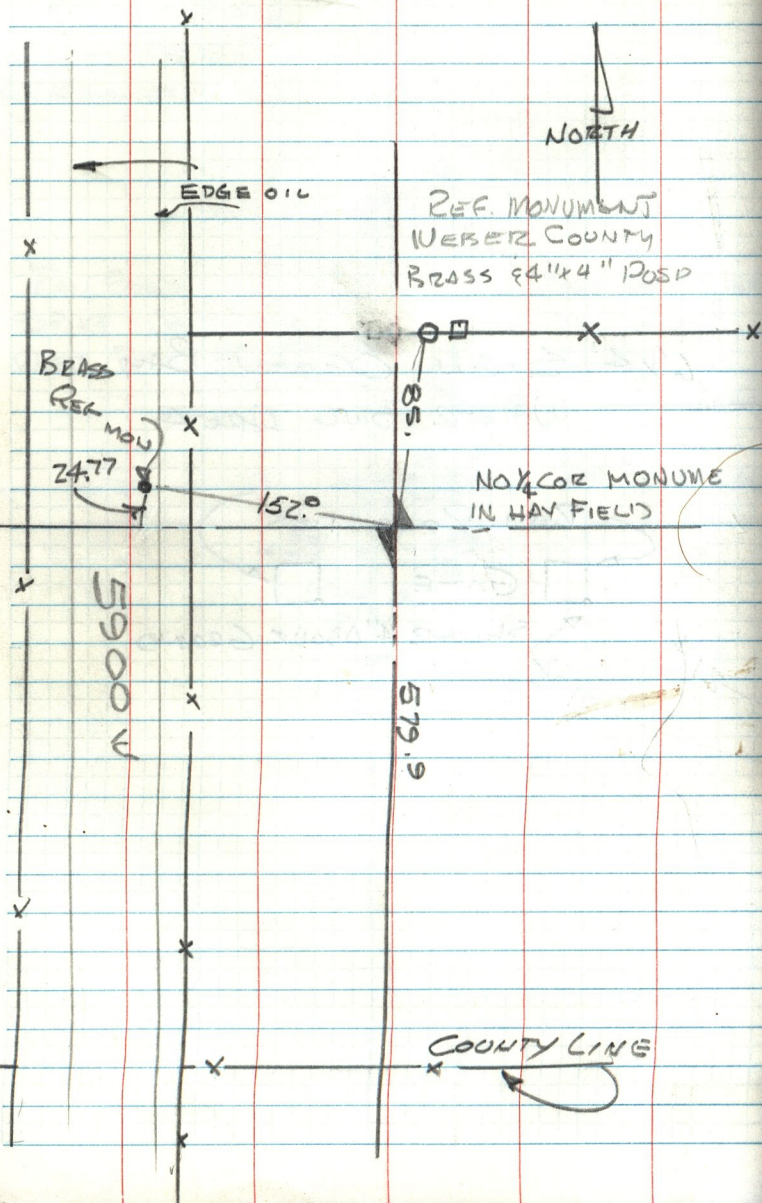 NORTH
EDGE OIL
REF. MONUMENT
WEBER COUNTY
BRASS & 4"x4" POST
BRASS
REF
MON
85.
24.77
152.0
NO ¼ COR MONUME
IN HAY FIELD
5900 W
579.9
COUNTY LINE